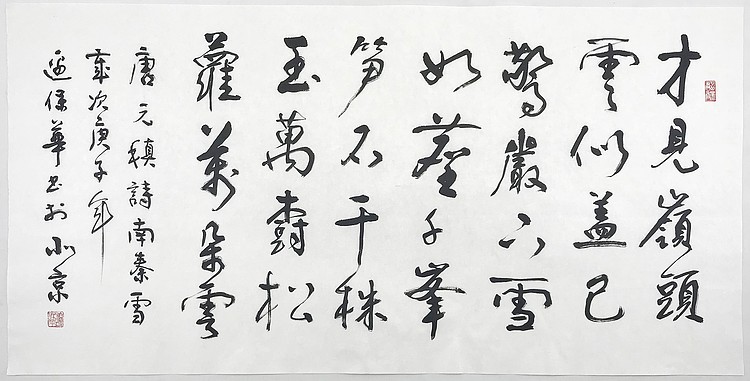 才見嶺頭
雲似蓋已
驚巖下雪
如塵千峯
笋石千株
玉萬樹松
蘿萬朵雲
唐元稹詩南秦雪
歲次庚子年
保華书於北京